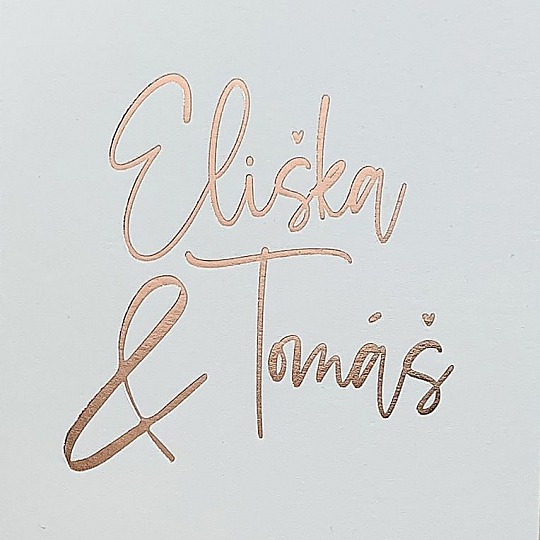 Eliška
& Tomáš